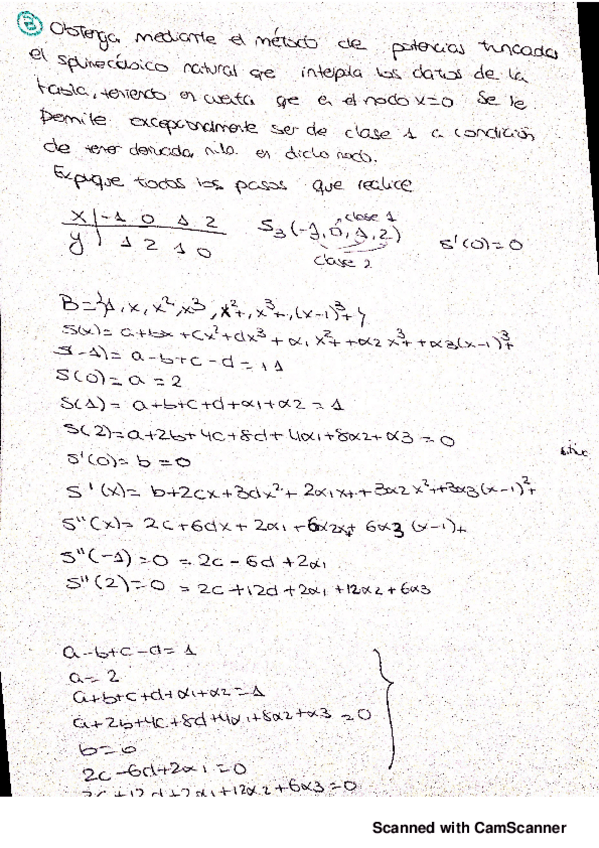 ③ Obtenga mediante el método de potencias truncadas
el spline cúbico natural que interpola los datos de la
tabla, teniendo en cuenta que en el nodo x=0 se le
permite excepcionalmente ser de clase 1 a condición
de tener derivada nula en dicho nodo.
Explique todos los pasos que realice
x | -1 0 1 2
y | 1 2 1 0
S₃(-1,0,1,2)
clase 1
clase 2
s'(0)=0
B={1,x,x²,x³,x²₊,x³₊,(x-1)³₊}
S(x)= a+bx+cx²+dx³+α₁x²₊+α2x³₊+α3(x-1)³₊
S-1)= a-b+c-d=1
S(0)=a=2
S(1)= a+b+c+d+α1+α2=1
S(2)=a+2b+4c+8d+4α1+8α2+α3=0
s'(0)=b=0
s'(x)= b+2cx+3dx²+2α1x₊+3α2x²₊+3α3(x-1)²₊
s"(x)= 2c+6dx+2α1+6α2x₊+6α3(x-1)₊
s"(-1)=0 = 2c-6d+2α1
s"(2)=0 = 2c+12d+2α1+12α2+6α3
a-b+c-d=1
a=2
a+b+c+d+α1+α2=1
a+2b+4c+8d+4α1+8α2+α3=0
b=0
2c-6d+2α1=0
2c+12d+2α1+12α2+6α3=0
Scanned with CamScanner